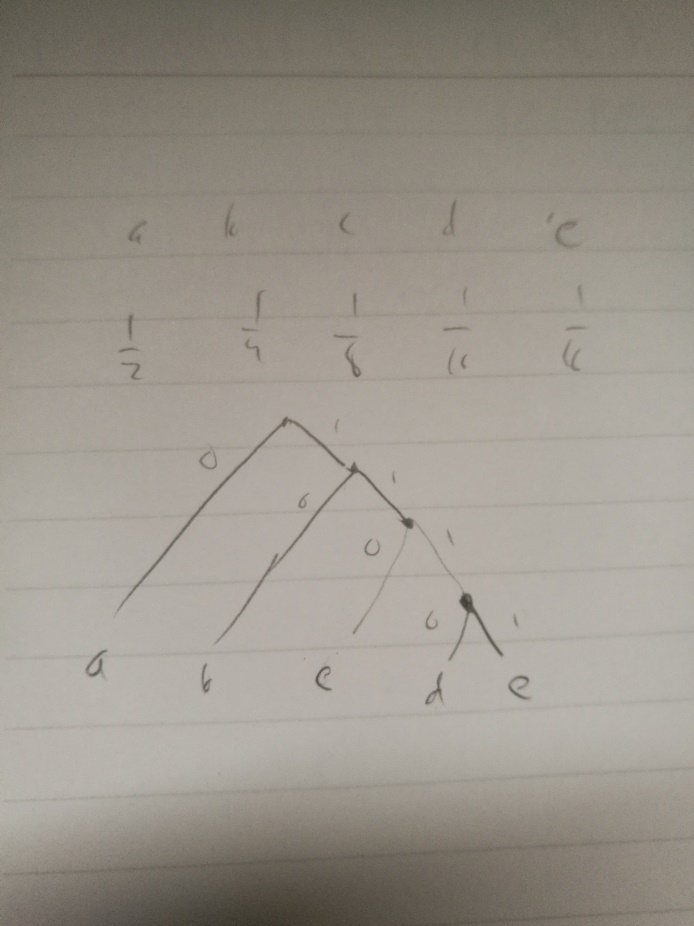 a b c d e
1/2 1/4 1/8 1/16 1/16
0 1
0 1
0 1
0 1
a b c d e